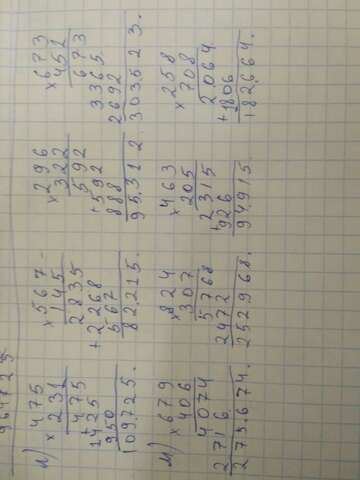 Л) 475
× 231
475
+
1425
950
109.725.
567
× 145
2835
+ 2268
567
82.215.
296
× 322
592
+ 592
888
95.312.
673
× 451
673
3365
2692
303.523.
М) 679
× 406
4074
2716
275.674.
824
× 307
5768
2472
252968.
463
× 205
2315
+ 926
94.915.
258
× 708
2.064
+ 1806
182.664.